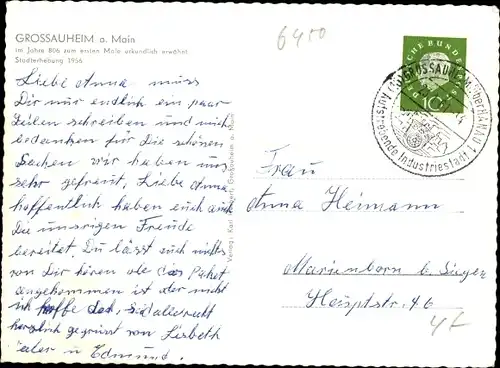 GROSSAUHEIM a. Main
Im Jahre 806 zum ersten Male urkundlich erwähnt
Stadterhebung 1956
6450
Liebe Anna muss
Dir nur endlich ein paar
Zeilen schreiben und mich
bedanken für die schönen
Sachen wir haben uns
sehr gefreut, Liebe Anna
hoffentlich haben euch auch
die unsrigen Freude
bereitet. Du lässt auch nichts
von Dir hören ob das Paket
angekommen ist aber nicht
ich hoffe doch,
herzlich gegrüsst von Lisbeth
u Edmund.
Verlag: Karl Grossauheim a. Main
DEUTSCHE BUNDESPOST
10
GROSSAUHEIM
Aufstrebende Industriestadt
Frau
Anna Heimann
Marienborn b. Siegen
Hauptstr. 46